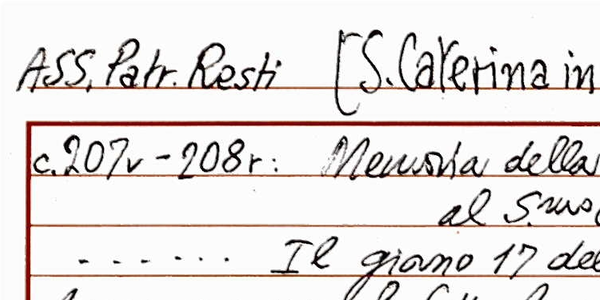 ASS. Patr. Resti [S. Caterina in
c. 207v - 208r: Memoria della
al S.mo
....... Il giorno 17 del